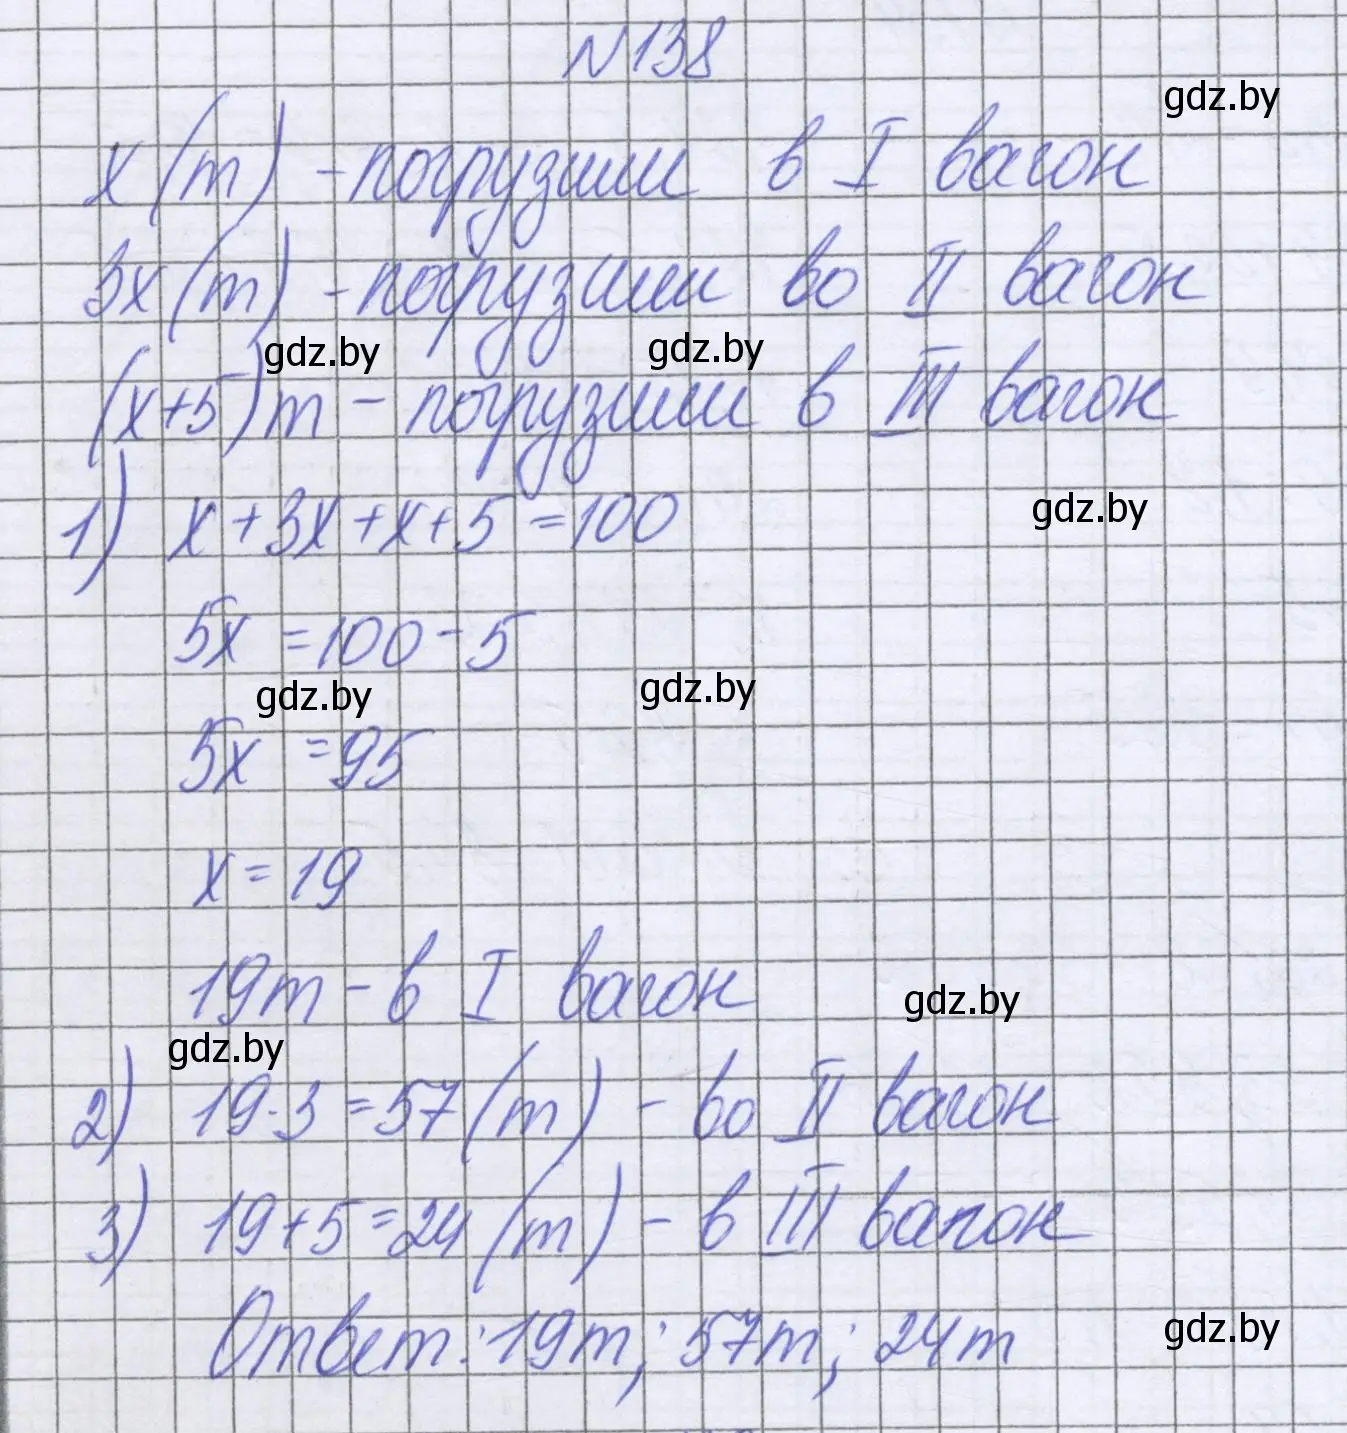 N138
gdz.by
x(т) - погрузили в I вагон
3x(т) - погрузили во II вагон
gdz.by gdz.by
(x+5)т - погрузили в III вагон
1) x+3x+x+5=100
gdz.by
5x=100-5
gdz.by gdz.by
5x=95
x=19
19т - в I вагон
gdz.by
gdz.by
2) 19·3=57(т) - во II вагон
3) 19+5=24(т) - в III вагон
Ответ: 19т; 57т; 24т
gdz.by